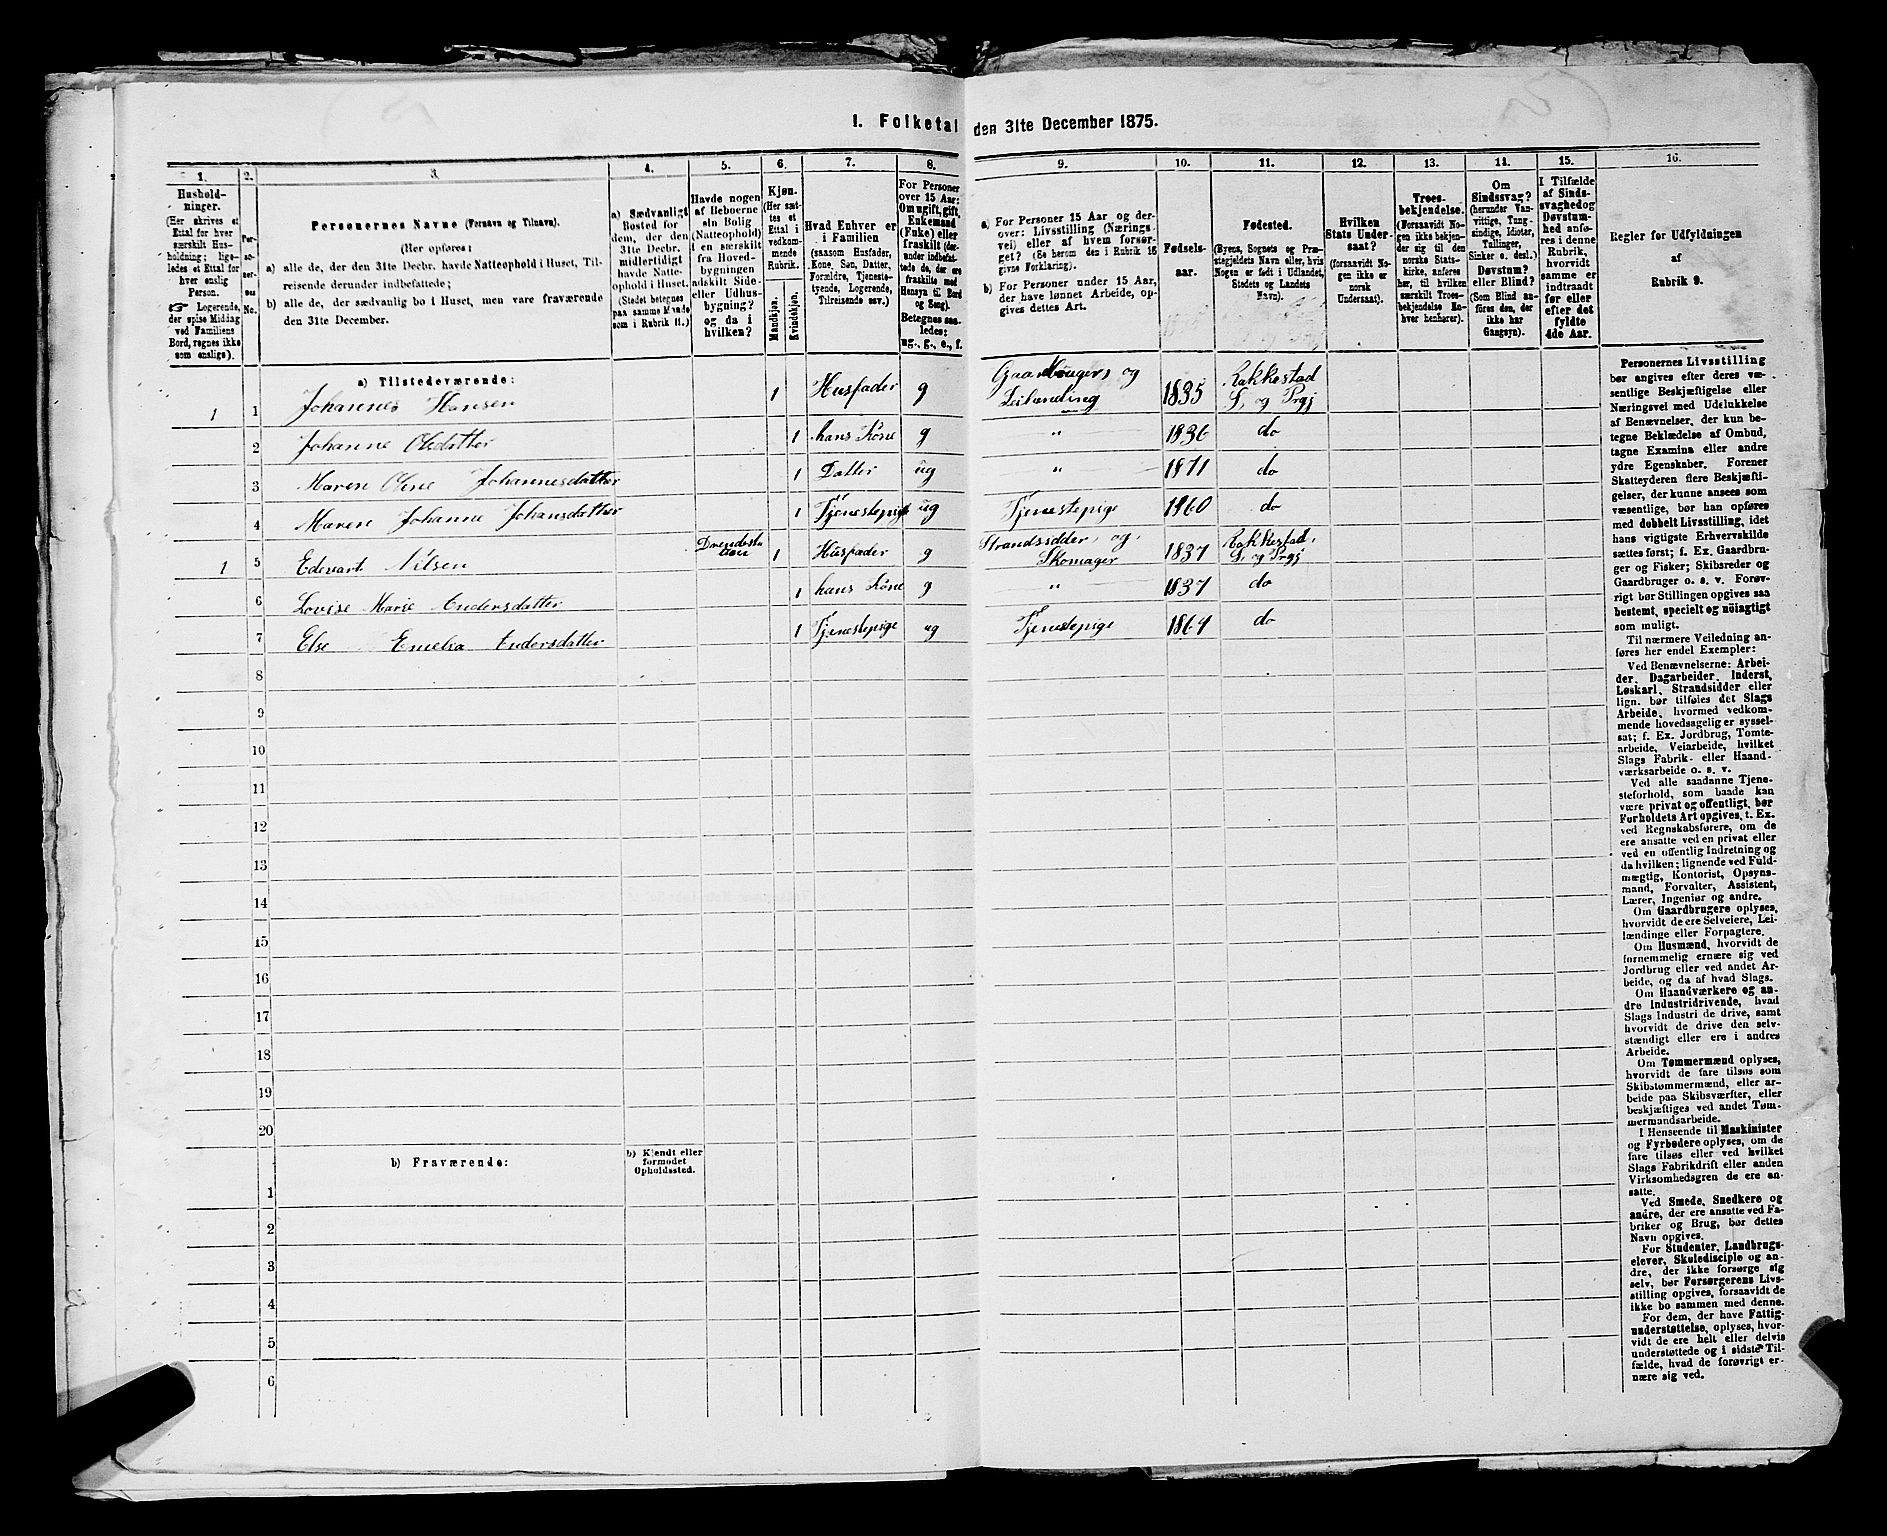 1. Folketal den 31te December 1875.
1. 2. 3. 4. 5. 6. 7. 8. 9. 10. 11. 12. 13. 14. 15. 16.
Hushold-
ninger.
(Her skrives et
Ettal for hver
særskilt Hus-
holdning; lige-
ledes et Ettal for
hver enslig
Person.
☞ Logerende,
der spise Middag
ved Familiens
Bord, regnes ikke
som enslige).
No.
Personernes Navne (Fornavn og Tilnavn).
(Her opføres:
a) alle de, der den 31te Decbr. havde Natteophold i Huset, Til-
reisende derunder indbefattede;
b) alle de, der sædvanlig bo i Huset, men vare fraværende
den 31te December.
a) Sædvanligt
Bosted for
dem, der den
31te Decbr.
midlertidigt
havde Natte-
ophold i Huset.
(Stedet betegnes
paa samme Maade
som i Rubrik 11.)
Havde nogen
af Beboerne
sin Bolig
(Natteophold)
i en særskilt
fra Hoved-
bygningen
adskilt Side-
eller Udhus-
bygning?
og da i
hvilken?
Kjøn.
(Her sæt-
tes et
Ettal i
vedkom-
mende
Rubrik.
Mandkjøn.
Kvindekjøn.
Hvad Enhver er
i Familien
(saasom Husfader,
Kone, Søn, Datter,
Forældre, Tjeneste-
tyende, Logerende,
Tilreisende osv.)
For Personer
over 15 Aar:
Om ugift, gift,
Enkemand
(Enke) eller
fraskilt (der-
under indbefat-
tede de, der ere
fraskilte med
Hensyn til Bord
og Seng).
Betegnes saa-
ledes:
ug., g., e., f.
a) For Personer 15 Aar og der-
over: Livsstilling (Nærings-
vei) eller af hvem forsør-
get? (Se herom den i Rubrik 16
givne Forklaring).
b) For Personer under 15 Aar,
der have lønnet Arbeide, op-
gives dettes Art.
Fødsels-
aar.
Fødested.
(Byens, Sognets og Præ-
stegjeldets Navn eller, hvis
Nogen er født i Udlandet,
Stedets og Landets
Navn).
Hvilken
Stats Under-
saat?
(forsaavidt No-
gen ikke er
norsk
Undersaat).
Troes-
bekjendelse.
(Forsaavidt No-
gen ikke bekjen-
der sig til den
norske Stats-
kirke, anføres
her, til hvilken
særskilt Troes-
bekjendelse En-
hver henhører).
Om
Sindssvag?
(herunder Van-
vittige, Tung-
sindige, Idioter,
Tullinger,
Sinker o. desl.).
Døvstum?
eller Blind?
(Som Blind an-
føres den, der
ikke har
Gangsyn).
I Tilfælde
af Sinds-
svaghed og
Døvstum-
hed anfø-
res i denne
Rubrik,
hvorvidt
samme er
indtraadt
før eller
efter det
fyldte
4de Aar.
Regler for Udfyldningen
af
Rubrik 9.
a) Tilstedeværende:
1 1 Johannes Hansen 1 Husfader g Gaardbruger og Leilænding 1835 Rakkestad S. og Prgj
2 Johanne Olsdatter 1 hans Kone g " 1836 do
3 Maren Oline Johannesdatter 1 Datter ug " 1871 do
4 Maren Johanne Johansdatter 1 Tjenestepige ug Tjenestepige 1860 do
1 5 Edevart Nilsen 1 Husfader g Strandsidder og Skomager 1837 Rakkestad S. og Prgj
6 Lovise Marie Andersdatter 1 hans Kone g " 1837 do
7 Else Emelia Andersdatter 1 Tjenestepige ug Tjenestepige 1864 do
8
9
10
11
12
13
14
15
16
17
18
19
20
b) Fraværende:
b) Kjendt eller
formodet
Opholdssted.
1
2
3
4
5
6
Personernes Livsstilling
bør angives efter deres væ-
sentlige Beskjæftigelse eller
Næringsvei med Udelukkelse
af Benævnelser, der kun be-
tegne Beklædelse af Ombud,
tagne Examina eller andre
ydre Egenskaber. Forener
Skatteyderen flere Beskjæfti-
gelser, der kunne ansees som
væsentlige, bør han opføres
med dobbelt Livsstilling, idet
hans vigtigste Erhvervskilde
sættes først; f. Ex. Gaardbru-
ger og Fisker; Skibsreder og
Gaardbruger o. s. v. Forøv-
rigt bør Stillingen opgives saa
bestemt, specielt og nöiagtigt
som muligt.
Til nærmere Veiledning an-
føres her endel Exempler:
Ved Benævnelserne: Arbei-
der, Dagarbeider, Inderst,
Løskarl, Strandsidder eller
lign. bør tilføies det Slags
Arbeide, hvormed vedkom-
mende hovedsagelig er syssel-
sat; f. Ex. Jordbrug, Tomte-
arbeide, Veiarbeide, hvilket
Slags Fabrik- eller Haand-
værksarbeide o. s. v.
Ved alle saadanne Tjene-
steforhold, som baade kan
være privat og offentligt, bør
Forholdets Art opgives, t. Ex.
ved Regnskabsførere, om de
ere ansatte ved en privat eller
ved en offentlig Indretning og
da hvilken; lignende ved Fuld-
mægtig, Kontorist, Opsyns-
mand, Forvalter, Assistent,
Lærer, Ingeniør og andre.
Om Gaardbrugere oplyses,
hvorvidt de ere Selveiere, Lei-
lændinge eller Forpagtere.
Om Husmænd, hvorvidt de
fornemmelig ernære sig ved
Jordbrug eller ved andet Ar-
beide, og da af hvad Slags.
Om Haandværkere og an-
dre Industridrivende, hvad
Slags Industri de drive, samt
hvorvidt de drive den selv-
stændigt eller ere i andres
Arbeide.
Om Tømmermænd oplyses,
hvorvidt de fare tilsøs som
Skibstømmermænd, eller ar-
beide paa Skibsværfter, eller
beskjæftiges ved andet Tøm-
mermandsarbeide.
I Henseende til Maskinister
og Fyrbødere oplyses, om de
fare tilsøs eller ved hvilket
Slags Fabrikdrift eller anden
Virksomhedsgren de ere an-
satte.
Ved Smede, Snedkere og
andre, der ere ansatte ved Fa-
briker og Brug, bør dettes
Navn opgives.
For Studenter, Landbrugs-
elever, Skoledisciple og an-
dre, der ikke forsørge sig
selv, bør Forsørgerens Livs-
stilling opgives, forsaavidt de
ikke bo sammen med denne.
For dem, der have Fattig-
understøttelse, oplyses, hvor-
vidt de ere helt eller delvis
understøttede og i sidste Til-
fælde, hvad de forøvrigt er-
nære sig ved.